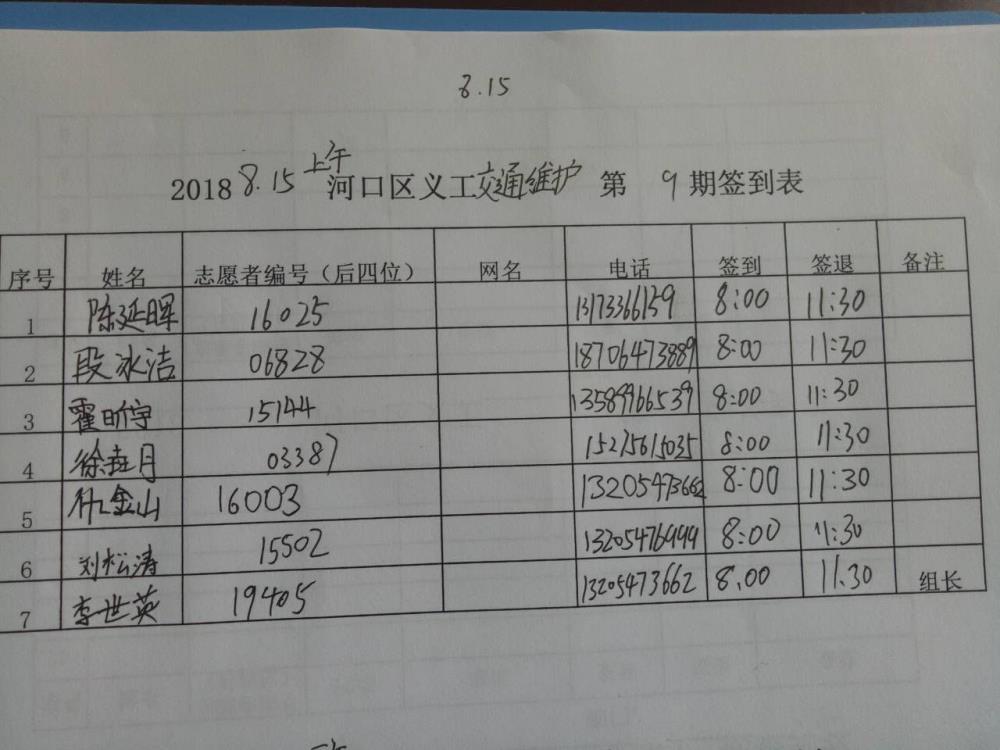 8.15
2018 8.15 上午 河口区义工交通维护 第 9 期签到表
序号 姓名 志愿者编号（后四位） 网名 电话 签到 签退 备注
1 陈延晖 16025 13173366159 8:00 11:30
2 段冰洁 06828 18706473889 8:00 11:30
3 霍昕宇 15144 13589966539 8:00 11:30
4 徐垚月 03387 15275615035 8:00 11:30
5 金山 16003 13205473662 8:00 11:30
6 刘松涛 15502 13205476999 8:00 11:30
7 李世英 19405 13205473662 8.00 11.30 组长